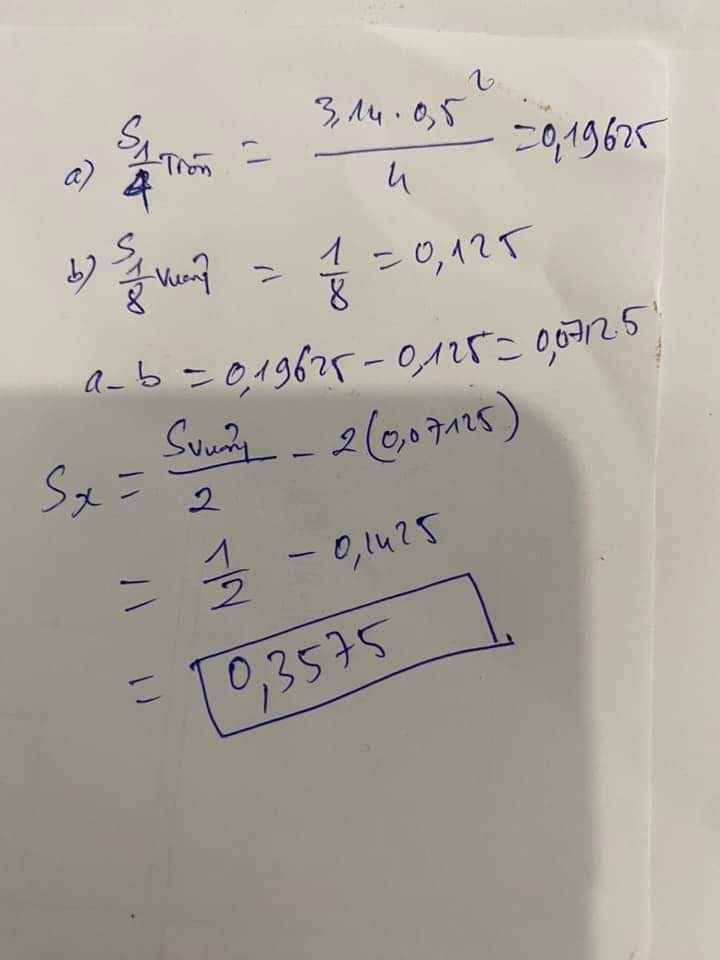 a) S 1/4 Tròn = 3,14 . 0,5² / 4 = 0,19625
b) S 1/8 Vuông = 1/8 = 0,125
a - b = 0,19625 - 0,125 = 0,07125
Sx = Svuông/2 - 2(0,07125)
= 1/2 - 0,1425
= 0,3575